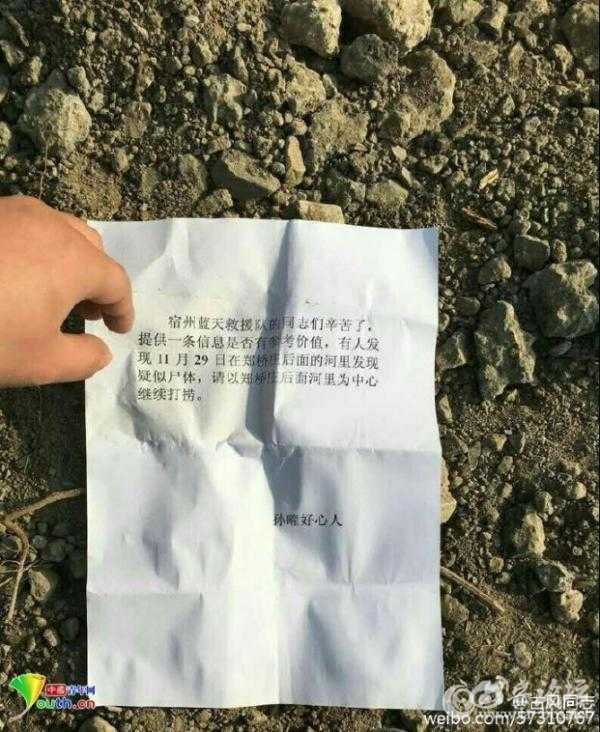 宿州蓝天救援队的同志们辛苦了,
提供一条信息是否有参考价值,有人发
现 11 月 29 日在郑桥庄后面的河里发现
疑似尸体,请以郑桥庄后面河里为中心
继续打捞。
孙疃好心人
中国青年网
Youth.cn
@古风同志
weibo.com/57310767